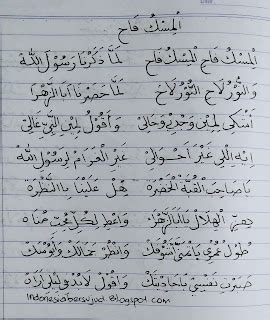 المسك فاح
المسك فاح المسك فاح لما ذكرنا رسول الله
والنور لاح النور لاح لما حضرنا أبا الزهرا
أشكي لمين وجدي وحالي وأقول لمين اللي على لي
إيه اللي غير أحوالي غير الغرام لرسول الله
يا صاحب القبة الخضرة هل علينا بالنظرة
الهلال يا أبا الزهرة واعط لكل محب مناه
طول عمري يا نبي أشوفك وانظر جمالك وأوصفك
صبرت نفسي بأحاديثك وأقول لابد يوم
Indonesiabersujud.Blogspot.com